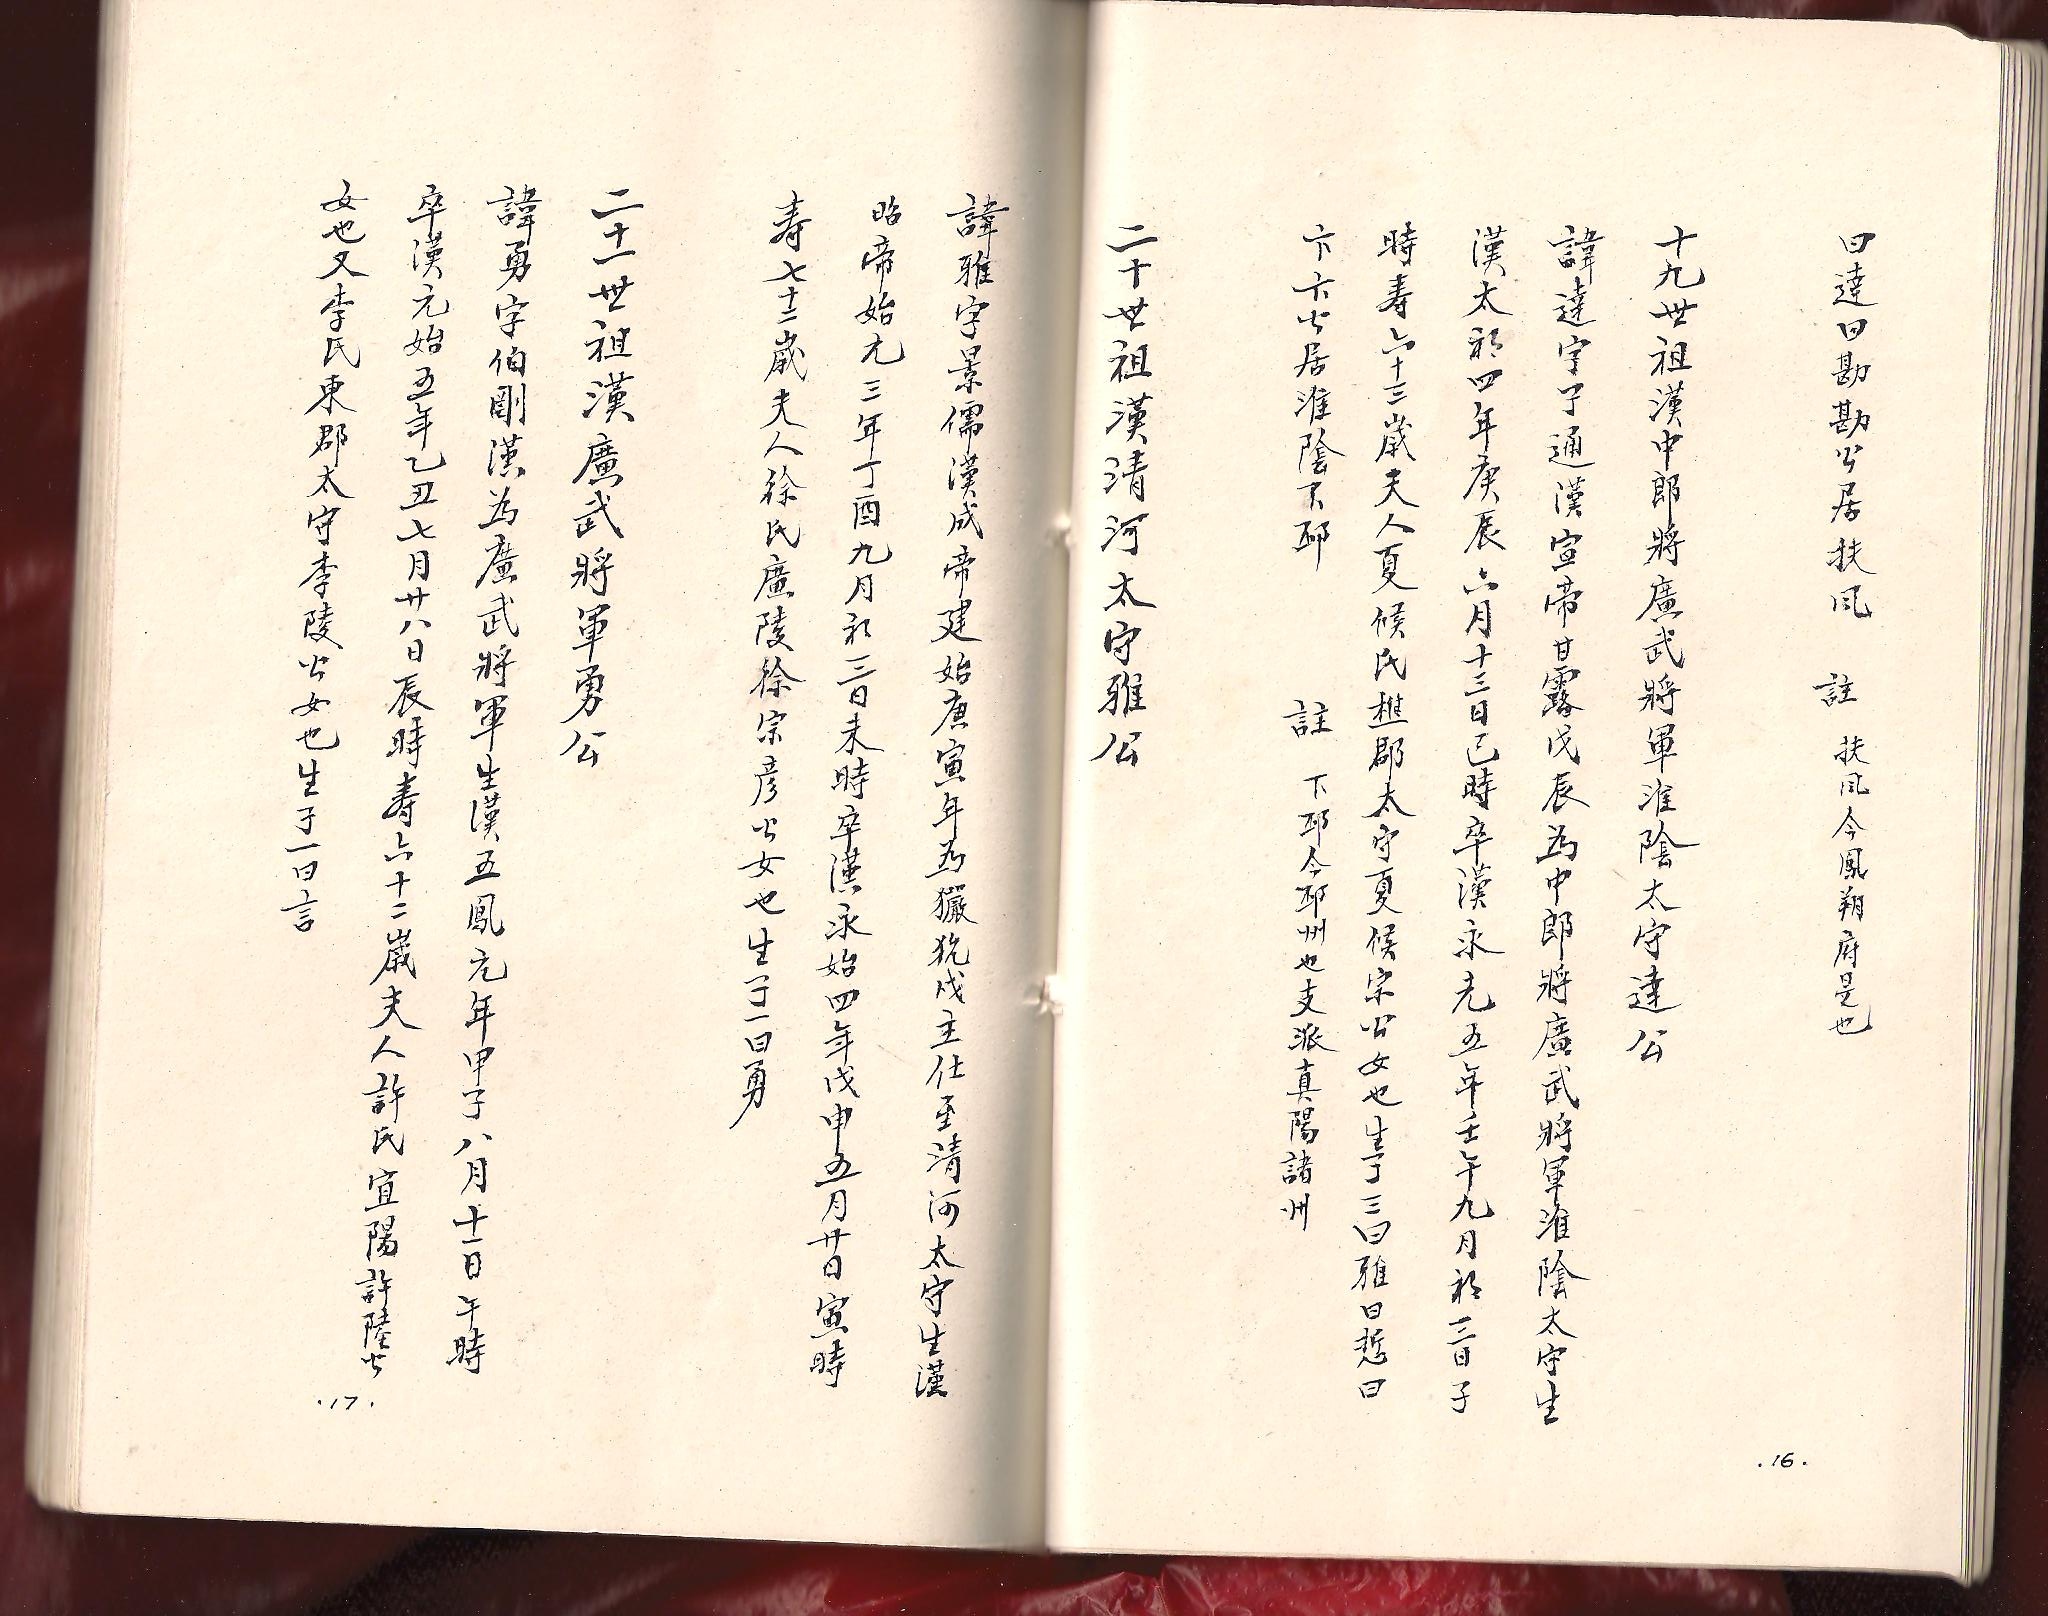 曰達曰勘勘公居扶風　註　扶風今鳳翔府是也
十九世祖漢中郎將廣武將軍淮陰太守達公
諱達字子通漢宣帝甘露戊辰為中郎將廣武將軍淮陰太守生
漢太初四年庚辰六月十三日巳時卒漢永光五年壬午九月初三日子
時寿六十三歲夫人夏候氏樵郡太守夏候宗公女也生子三曰雅曰悊曰
卞卞公居淮陰下邳　註　下邳今邳州也支派真陽諸州
二十世祖漢清河太守雅公
.16.
諱雅字景儒漢成帝建始庚寅年為玁狁戍主仕至清河太守生漢
昭帝始元三年丁酉九月初三日未時卒漢永始四年戊申五月廿日寅時
寿七十二歲夫人徐氏廣陵徐宗彦公女也生子一曰勇
二十一世祖漢廣武將軍勇公
諱勇字伯剛漢為廣武將軍生漢五鳳元年甲子八月十一日午時
卒漢元始五年乙丑七月廿八日辰時寿六十二歲夫人許氏宜陽許陸公
女也又李氏東郡太守李陵公女也生子一曰言
.17.